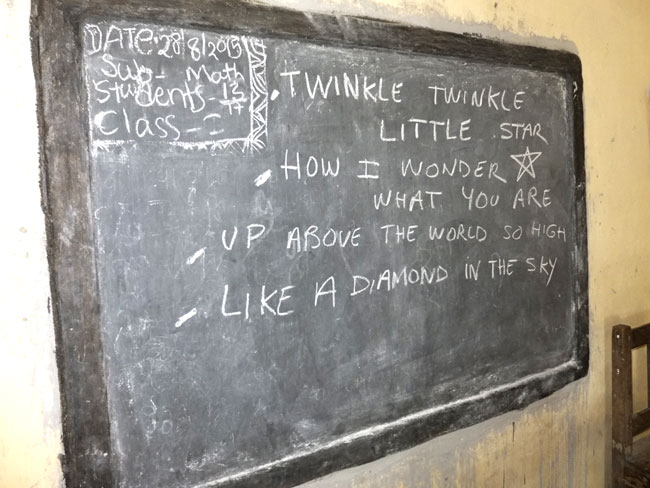 DATE: 28/8/2015
Sub - Math
Students - 15/17
Class - I
TWINKLE TWINKLE
LITTLE STAR
HOW I WONDER
WHAT YOU ARE
UP ABOVE THE WORLD SO HIGH
LIKE A DIAMOND IN THE SKY